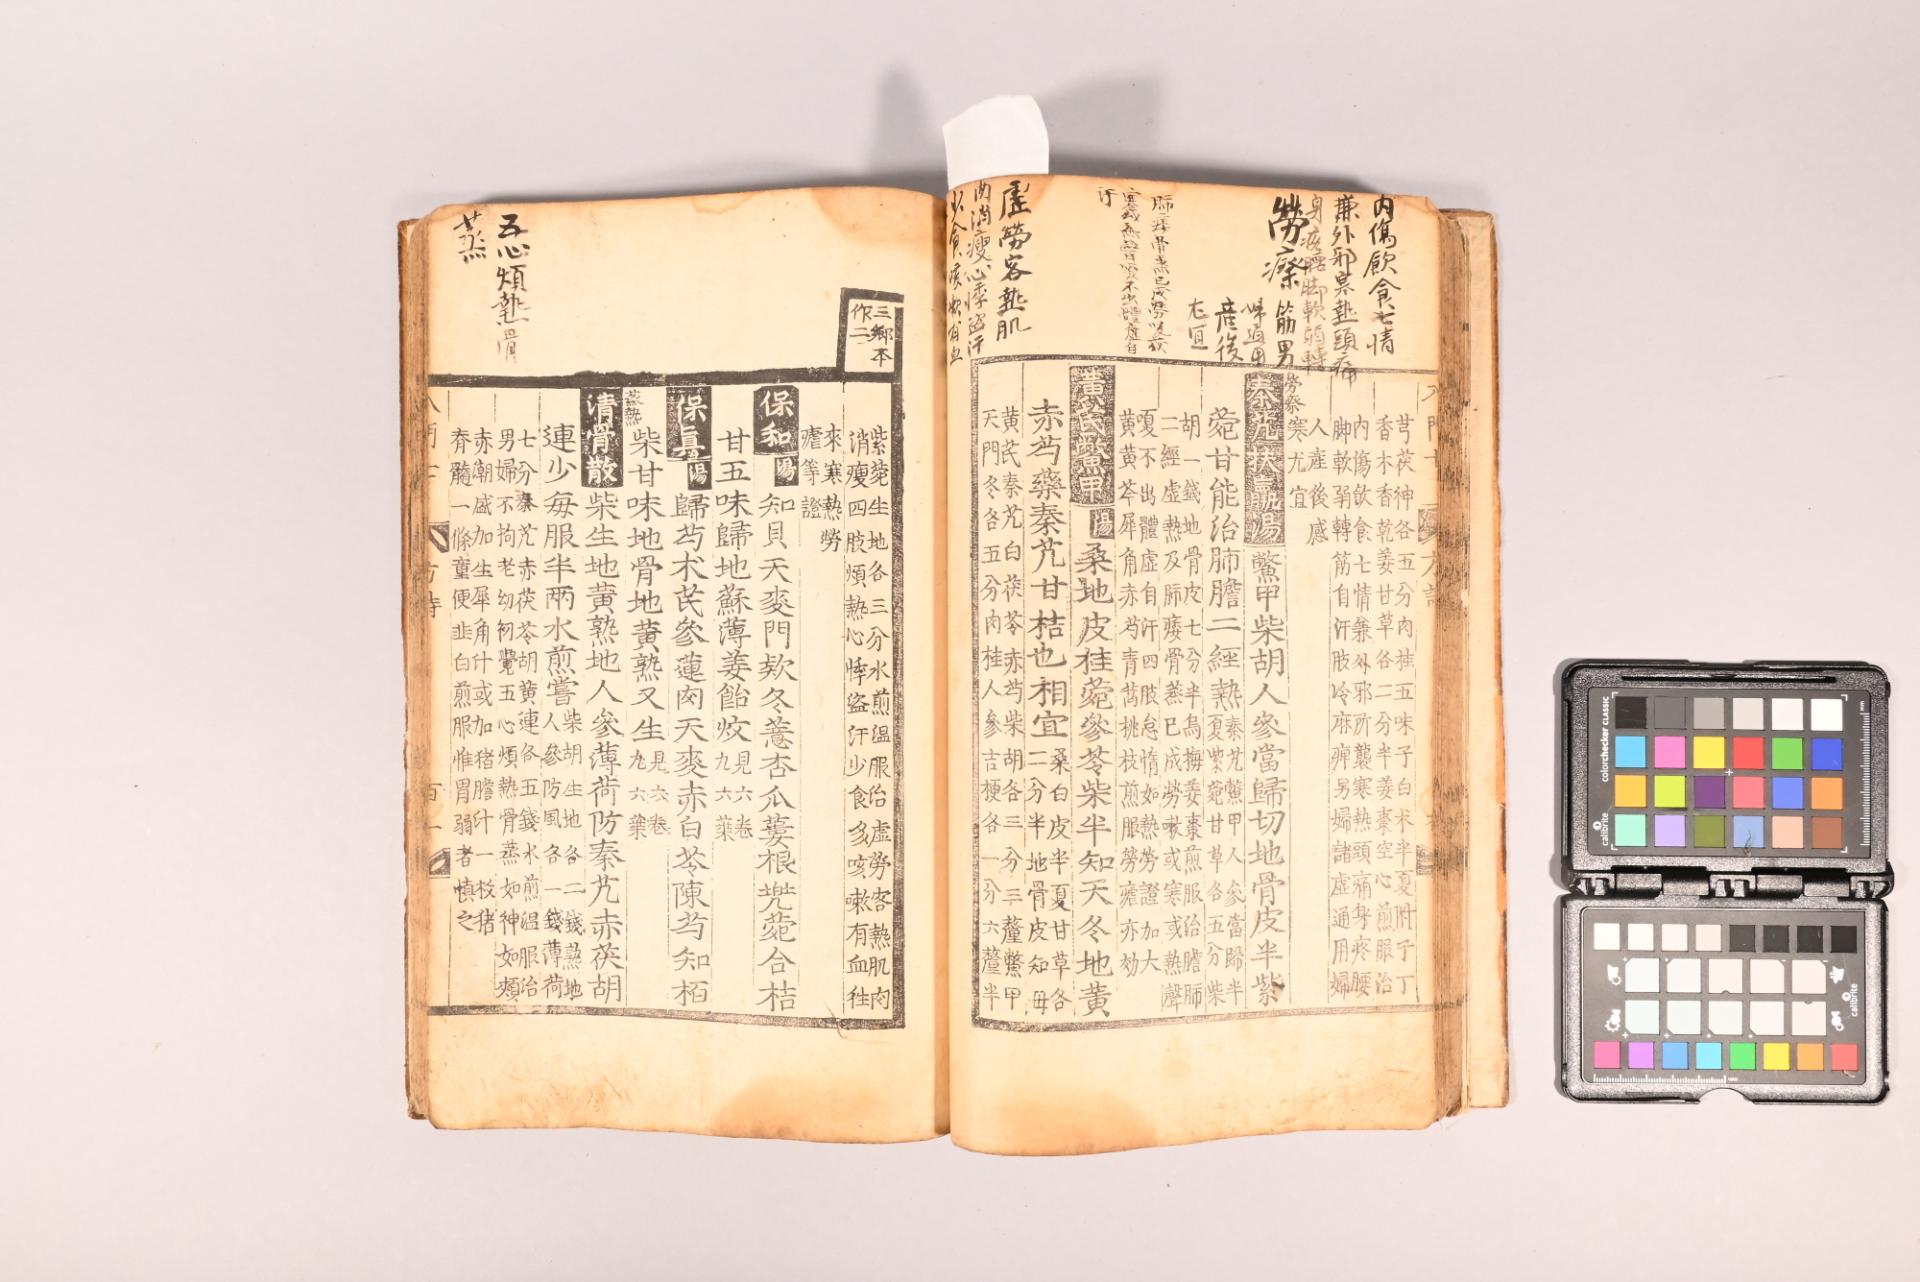 內傷飮食七情
兼外邪寒熱頭痛
身疼腰脚軟弱轉
筋男
勞瘵
婦通用
産後
尤宜
虛勞客熱肌
肉消瘦心悸盜汗
少食咳嗽有血
芎茯神各五分肉桂五味子白朮半夏附子丁
香木香乾姜甘草各二分半姜棗空心煎服治
內傷飮食七情兼外邪所襲寒熱頭痛身疼腰
脚軟弱轉筋自汗肢冷麻痺男婦諸虛通用婦
人産後感
寒尤宜
勞瘵
秦艽扶羸湯鱉甲柴胡人參當歸切地骨皮半紫
菀甘能治肺膽二經熱秦艽鱉甲人參當歸半
夏紫菀甘草各五分柴
胡一錢地骨皮七分半烏梅姜棗煎服治膽肺
二經虛熱及肺痿骨蒸已成勞嗽或寒或熱聲
嗄不出體虛自汗四肢怠惰如熱勞證加大
黃黃芩犀角赤芍靑蒿桃枝煎服勞瘧亦効
黃芪鱉甲湯桑地皮桂菀參苓柴半知天冬地黃
赤芍藥秦艽甘桔也相宜桑白皮半夏甘草各
二分半地骨皮知毋
黃芪秦艽白茯苓赤芍柴胡各三分三釐鱉甲
天門冬各五分肉桂人參吉梗各一分六釐半
三鄕本
作二
五心煩熱骨
蒸
紫菀生地各三分水煎溫服治虛勞客熱肌肉
消瘦四肢煩熱心悸盜汗少食多咳嗽有血徃
來寒熱勞
瘧等證
保和湯知貝天麥門欵冬薏杏瓜蔞根兠菀合桔
甘五味歸地蘇薄姜飴炆見六卷
九六藥
保眞湯歸芍朮芪參蓮肉天麥赤白苓陳芍知栢
柴甘味地骨地黃熟又生見六卷
九六藥
蒸熱
清骨散柴生地黃熟地人參薄荷防秦艽赤茯胡
連少每服半兩水煎嘗柴胡生地各二錢熟地
人參防風各一錢薄荷
七分秦艽赤茯苓胡黃連各五錢水煎溫服治
男婦不拘老幼初覺五心煩熱骨蒸如神如頰
赤潮盛加生犀角汁或加猪膽汁一枝猪
脊髓一條童便韭白煎服惟胃弱者愼之